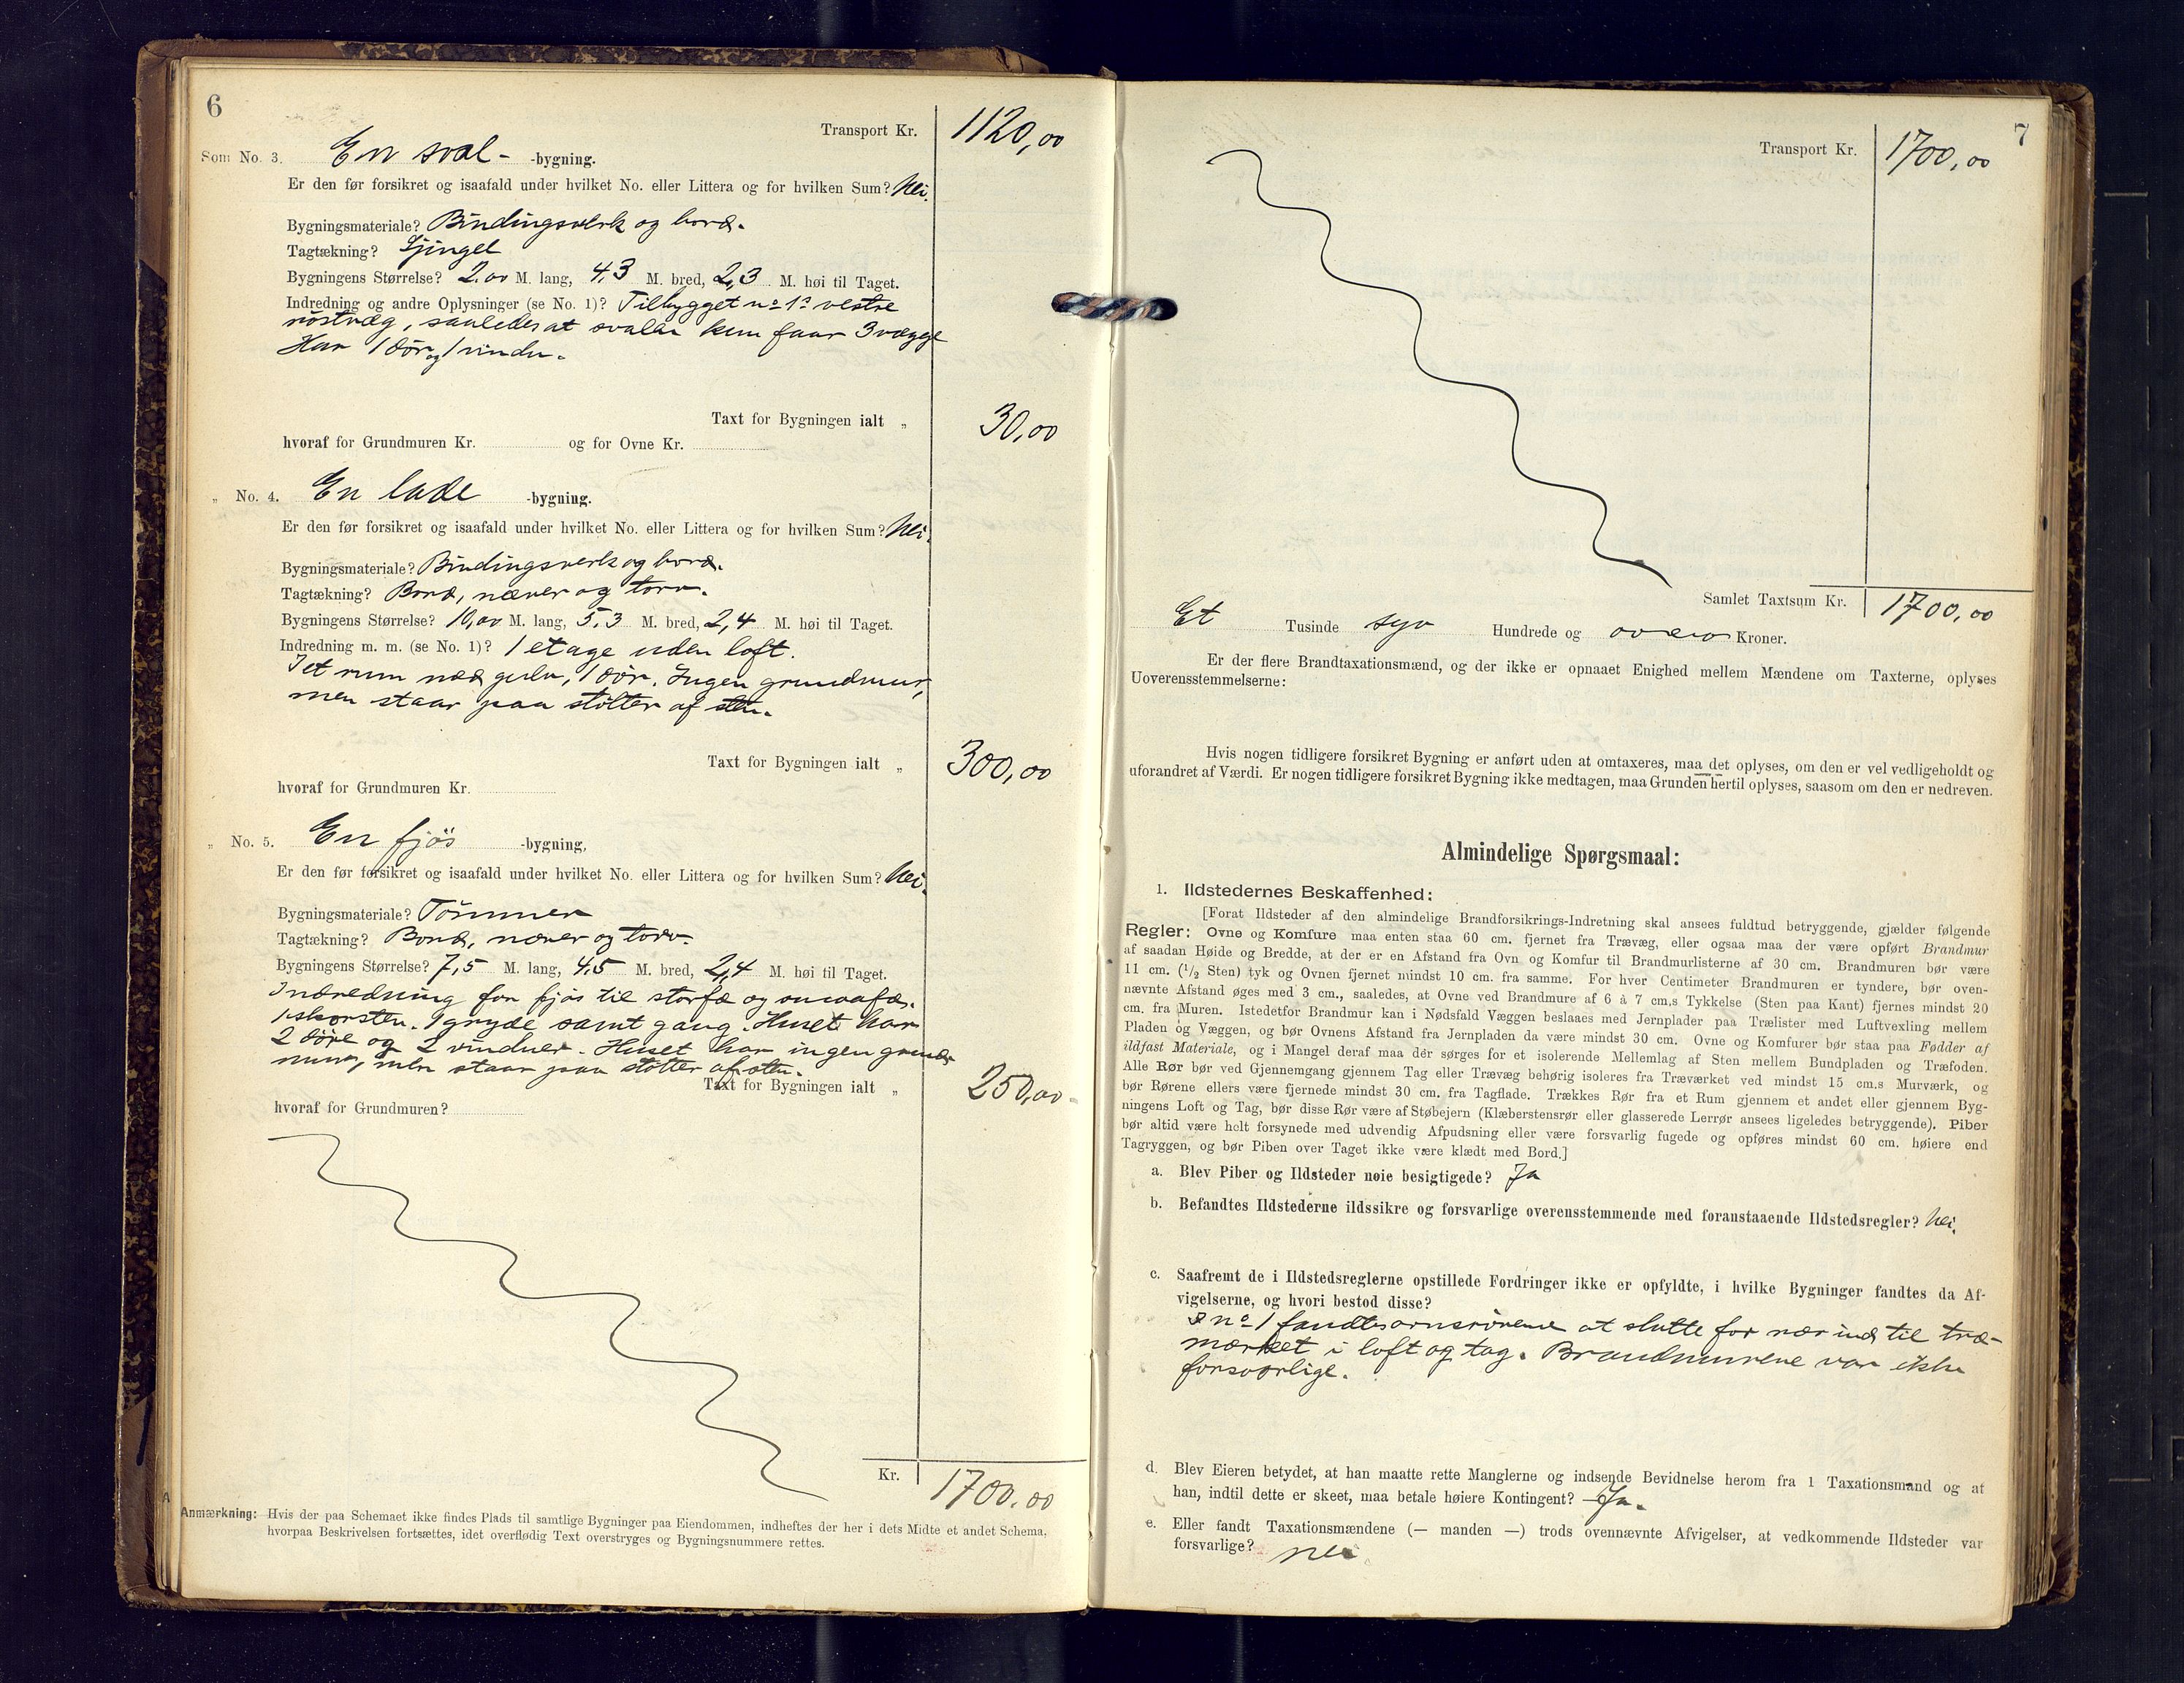 6
Transport Kr. 1120,00
Som No. 3. En sval- -bygning.
Er den før forsikret og isaafald under hvilket No. eller Littera og for hvilken Sum? Nei.
Bygningsmateriale? Bindingsverk og bord.
Tagtækning? Sjingel
Bygningens Størrelse? 2,00 M. lang, 4,3 M. bred, 2,3 M. høi til Taget.
Indredning og andre Oplysninger (se No. 1)? Tilbygget no 1s vestre
røstvæg, saaledes at svalen kun faar 3 vægge
Har 1 dør og 1 vindu.
Taxt for Bygningen ialt „ 30,00
hvoraf for Grundmuren Kr. og for Ovne Kr.
„ No. 4. En lade -bygning.
Er den før forsikret og isaafald under hvilket No. eller Littera og for hvilken Sum? Nei.
Bygningsmateriale? Bindingsverk og bord.
Tagtækning? Bord, næver og torv.
Bygningens Størrelse? 10,00 M. lang, 5,3 M. bred, 2,4 M. høi til Taget.
Indredning m. m. (se No. 1)? 1 etage uden loft.
I et rum med gulv, 1 dør. Ingen grundmur,
men staar paa støtter af sten.
Taxt for Bygningen ialt „ 300,00
hvoraf for Grundmuren Kr.
„ No. 5. En fjøs -bygning,
Er den før forsikret og isaafald under hvilket No. eller Littera og for hvilken Sum? Nei.
Bygningsmateriale? Tømmer
Tagtækning? Bord, næver og torv.
Bygningens Størrelse? 7,5 M. lang, 4,5 M. bred, 2,4 M. høi til Taget.
Indredning for fjøs til storfæ og smaafæ.
1 skorsten. 1 gryde samt gang. Huset har
2 døre og 2 vinduer. Huset har ingen grund-
mur, men staar paa støtter af sten.
Taxt for Bygningen ialt „ 250,00
hvoraf for Grundmuren?
Kr. 1700,00
Anmærkning: Hvis der paa Schemaet ikke findes Plads til samtlige Bygninger paa Eiendommen, indheftes der her i dets Midte et andet Schema,
hvorpaa Beskrivelsen fortsættes, idet overflødig Text overstryges og Bygningsnummere rettes.
7
Transport Kr. 1700,00
Samlet Taxtsum Kr. 1700,00
Et Tusinde syv Hundrede og Kroner.
Er der flere Brandtaxationsmænd, og der ikke er opnaaet Enighed mellem Mændene om Taxterne, oplyses
Uoverensstemmelserne:
Hvis nogen tidligere forsikret Bygning er anført uden at omtaxeres, maa det oplyses, om den er vel vedligeholdt og
uforandret af Værdi. Er nogen tidligere forsikret Bygning ikke medtagen, maa Grunden hertil oplyses, saasom om den er nedreven.
Almindelige Spørgsmaal:
1. Ildstedernes Beskaffenhed:
[Forat Ildsteder af den almindelige Brandforsikrings-Indretning skal ansees fuldtud betryggende, gjælder følgende
Regler: Ovne og Komfure maa enten staa 60 cm. fjernet fra Trævæg, eller ogsaa maa der være opført Brandmur
af saadan Høide og Bredde, at der er en Afstand fra Ovn og Komfur til Brandmurlisterne af 30 cm. Brandmuren bør være
11 cm. (1/2 Sten) tyk og Ovnen fjernet mindst 10 cm. fra samme. For hver Centimeter Brandmuren er tyndere, bør oven-
nævnte Afstand øges med 3 cm., saaledes, at Ovne ved Brandmure af 6 à 7 cm.s Tykkelse (Sten paa Kant) fjernes mindst 20
cm. fra Muren. Istedetfor Brandmur kan i Nødsfald Væggen beslaaes med Jernplader paa Trælister med Luftvexling mellem
Pladen og Væggen, og bør Ovnens Afstand fra Jernpladen da være mindst 30 cm. Ovne og Komfurer bør staa paa Fødder af
ildfast Materiale, og i Mangel deraf maa der sørges for et isolerende Mellemlag af Sten mellem Bundpladen og Træfoden.
Alle Rør bør ved Gjennemgang gjennem Tag eller Trævæg behørig isoleres fra Træværket ved mindst 15 cm.s Murværk, og
bør Rørene ellers være fjernede mindst 30 cm. fra Tagflade. Trækkes Rør fra et Rum gjennem et andet eller gjennem Byg-
ningens Loft og Tag, bør disse Rør være af Støbejern (Klæberstensrør eller glasserede Lerrør ansees ligeledes betryggende). Piber
bør altid være helt forsynede med udvendig Afpudsning eller være forsvarlig fugede og opføres mindst 60 cm. høiere end
Tagryggen, og bør Piben over Taget ikke være klædt med Bord.]
a. Blev Piber og Ildsteder nøie besigtigede? Ja
b. Befandtes Ildstederne ildssikre og forsvarlige overensstemmende med foranstaaende Ildstedsregler? Nei.
c. Saafremt de i Ildstedsreglerne opstillede Fordringer ikke er opfyldte, i hvilke Bygninger fandtes da Af-
vigelserne, og hvori bestod disse?
I no 1 fandtes ovnsrørene at slutte for nær ind til træ-
mærket i loft og tag. Brandmurene var ikke
forsvarlige.
d. Blev Eieren betydet, at han maatte rette Manglerne og indsende Bevidnelse herom fra 1 Taxationsmand og at
han, indtil dette er skeet, maa betale høiere Kontingent? Ja.
e. Eller fandt Taxationsmændene (— manden —) trods ovennævnte Afvigelser, at vedkommende Ildsteder var
forsvarlige? nei